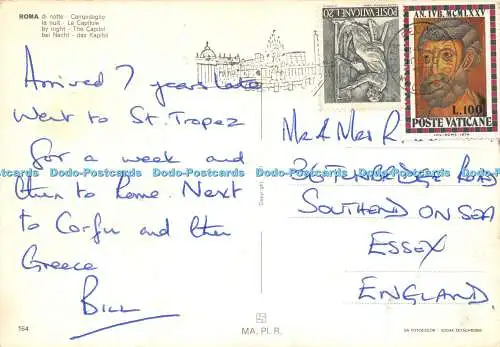 ROMA di notte - Campidoglio
la nuit - Le Capitole
by night - The Capitol
bei Nacht - das Kapitol
POSTE VATICANE L.120
AN. IVB. MCMLXXV
L.100
POSTE VATICANE
Arrived 7 years late
Went to St. Tropez
for a week and
then to Rome. Next
to Corfu and then
Greece
BILL
Mr & Mrs R.
ROAD
SOUTHEND ON SEA
ESSEX
ENGLAND.
Dodo-Postcards Dodo-Postcards Dodo-Postcards Dodo-Postcards
Copyright
164
MA. PI. R.